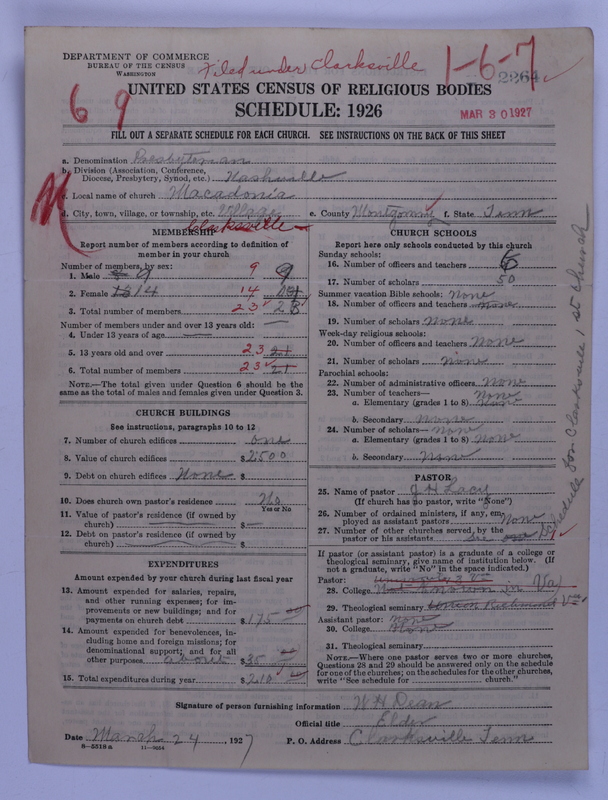 DEPARTMENT OF COMMERCE
BUREAU OF THE CENSUS
WASHINGTON
Filed under Clarksville
1-6-7
2264
69
UNITED STATES CENSUS OF RELIGIOUS BODIES
SCHEDULE: 1926
MAR 30 1927
FILL OUT A SEPARATE SCHEDULE FOR EACH CHURCH. SEE INSTRUCTIONS ON THE BACK OF THIS SHEET
a. Denomination Presbyterian
b. Division (Association, Conference, Diocese, Presbytery, Synod, etc.) Nashville
c. Local name of church Macadonia
d. City, town, village, or township, etc. Village e. County Montgomery f. State Tenn
Clarksville
MEMBERSHIP
Report number of members according to definition of
member in your church
Number of members, by sex:
1. Male 9 9
2. Female 14 14
3. Total number of members 23 23
Number of members under and over 13 years old:
4. Under 13 years of age
5. 13 years old and over 23
6. Total number of members 23
NOTE.—The total given under Question 6 should be the
same as the total of males and females given under Question 3.
CHURCH BUILDINGS
See instructions, paragraphs 10 to 12
7. Number of church edifices one
8. Value of church edifices $2500
9. Debt on church edifices None $
10. Does church own pastor's residence No
Yes or No
11. Value of pastor's residence (if owned by
church) $
12. Debt on pastor's residence (if owned by
church) $
EXPENDITURES
Amount expended by your church during last fiscal year
13. Amount expended for salaries, repairs,
and other running expenses; for im-
provements or new buildings; and for
payments on church debt $175
14. Amount expended for benevolences, in-
cluding home and foreign missions; for
denominational support; and for all
other purposes about $35
15. Total expenditures during year $210
CHURCH SCHOOLS
Report here only schools conducted by this church
Sunday schools:
16. Number of officers and teachers 6
17. Number of scholars 50
Summer vacation Bible schools: None
18. Number of officers and teachers None
19. Number of scholars None
Week-day religious schools:
20. Number of officers and teachers None
21. Number of scholars None
Parochial schools:
22. Number of administrative officers None
23. Number of teachers— None
a. Elementary (grades 1 to 8) None
b. Secondary None
24. Number of scholars— None
a. Elementary (grades 1 to 8) None
b. Secondary None
PASTOR
25. Name of pastor J H Lacy
(If church has no pastor, write "None")
26. Number of ordained ministers, if any, em-
ployed as assistant pastors None
27. Number of other churches served by the
pastor or his assistants See one
Schedule for Clarksville 1st church
If pastor (or assistant pastor) is a graduate of a college or
theological seminary, give name of institution below. (If
not a graduate, write "No" in the space indicated.)
Pastor:
28. College in Va
29. Theological seminary Union Richmond Va
Assistant pastor: None
30. College None
31. Theological seminary
NOTE.—Where one pastor serves two or more churches,
Questions 28 and 29 should be answered only on the schedule
for one of the churches; on the schedules for the other churches,
write "See schedule for church."
Signature of person furnishing information W H Dean
Official title Elder
Date March 24, 1927 P. O. Address Clarksville Tenn
8-5518a 11-9054